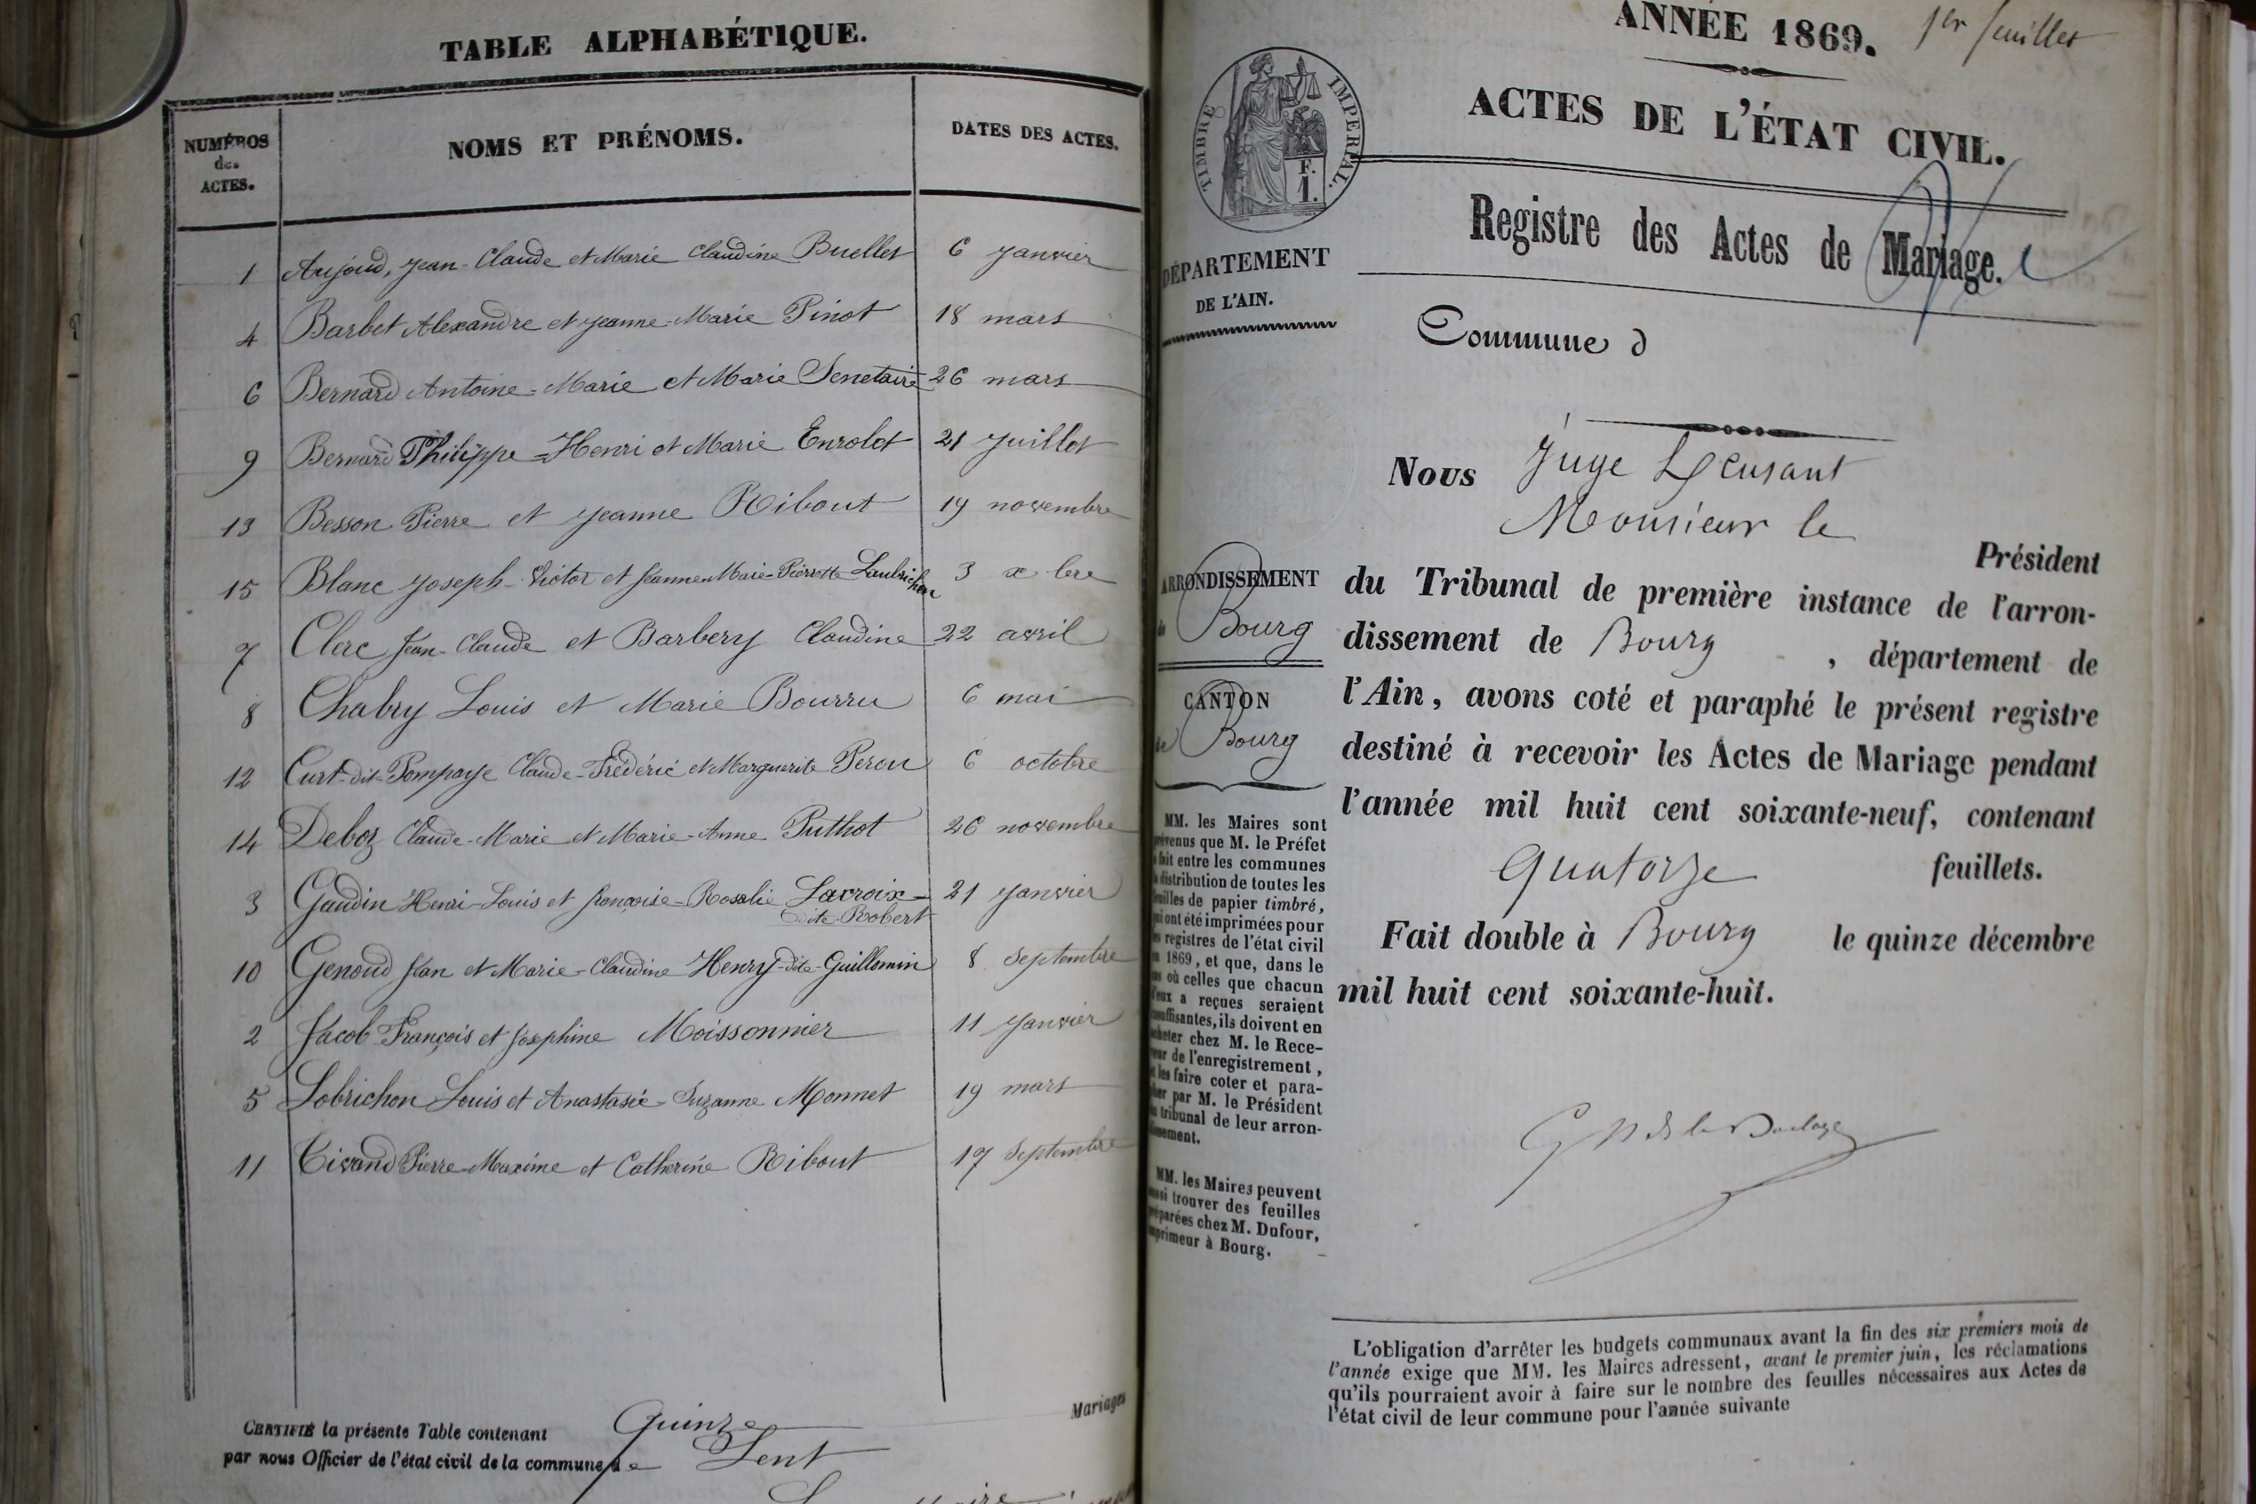 TABLE ALPHABÉTIQUE.
NUMÉROS
des
ACTES.
NOMS ET PRÉNOMS.
DATES DES ACTES.
1 Aujoud, Jean-Claude et Marie Claudine Buellet 6 Janvier
4 Barbet Alexandre et Jeanne-Marie Pinot 18 mars
6 Bernard Antoine-Marie et Marie Senetaire 26 mars
9 Bernard Philippe-Henri et Marie Enrolot 21 Juillet
13 Besson Pierre et Jeanne Ribout 19 novembre
15 Blanc Joseph-Victor et Jeanne-Marie-Pierrette Laubrichon 3 xbre
7 Clerc Jean-Claude et Barbery Claudine 22 avril
8 Chabry Louis et Marie Bourru 6 mai
12 Curt-dit-Pompaye Claude-Frédéric et Marguerite Perou 6 octobre
14 Deboz Claude-Marie et Marie-Anne Puthot 26 novembre
3 Gaudin Henri-Louis et françoise-Rosalie Lacroix- 21 Janvier
dite-Robert
10 Genoud Jean et Marie-Claudine Henry-dite-Guillomin 8 Septembre
2 Jacob François et Josephine Moissonnier 11 Janvier
5 Lobrichon Louis et Anastasie-Suzanne Monnet 19 mars
11 Tivand Pierre-Maxime et Catherine Ribout 17 Septembre
Mariages
CERTIFIÉ la présente Table contenant Quinze
par nous Officier de l'état civil de la commune de Lent
ANNÉE 1869.
1er feuillet
ACTES DE L'ÉTAT CIVIL.
TIMBRE IMPÉRIAL.
F.
1.
Registre des Actes de Mariage.
DÉPARTEMENT
DE L'AIN.
Commune d
Nous Juge
Monsieur le
Président
du Tribunal de première instance de l'arron-
dissement de Bourg, département de
l'Ain, avons coté et paraphé le présent registre
destiné à recevoir les Actes de Mariage pendant
l'année mil huit cent soixante-neuf, contenant
Quatorze feuillets.
Fait double à Bourg le quinze décembre
mil huit cent soixante-huit.
ARRONDISSEMENT
de Bourg
CANTON
de Bourg
MM. les Maires sont
prévenus que M. le Préfet
a fait entre les communes
la distribution de toutes les
feuilles de papier timbré,
qui ont été imprimées pour
les registres de l'état civil
en 1869, et que, dans le
cas où celles que chacun
d'eux a reçues seraient
insuffisantes, ils doivent en
acheter chez M. le Rece-
veur de l'enregistrement,
et les faire coter et para-
pher par M. le Président
du tribunal de leur arron-
dissement.
MM. les Maires peuvent
aussi trouver des feuilles
préparées chez M. Dufour,
imprimeur à Bourg.
L'obligation d'arrêter les budgets communaux avant la fin des six premiers mois de
l'année exige que MM. les Maires adressent, avant le premier juin, les réclamations
qu'ils pourraient avoir à faire sur le nombre des feuilles nécessaires aux Actes de
l'état civil de leur commune pour l'année suivante